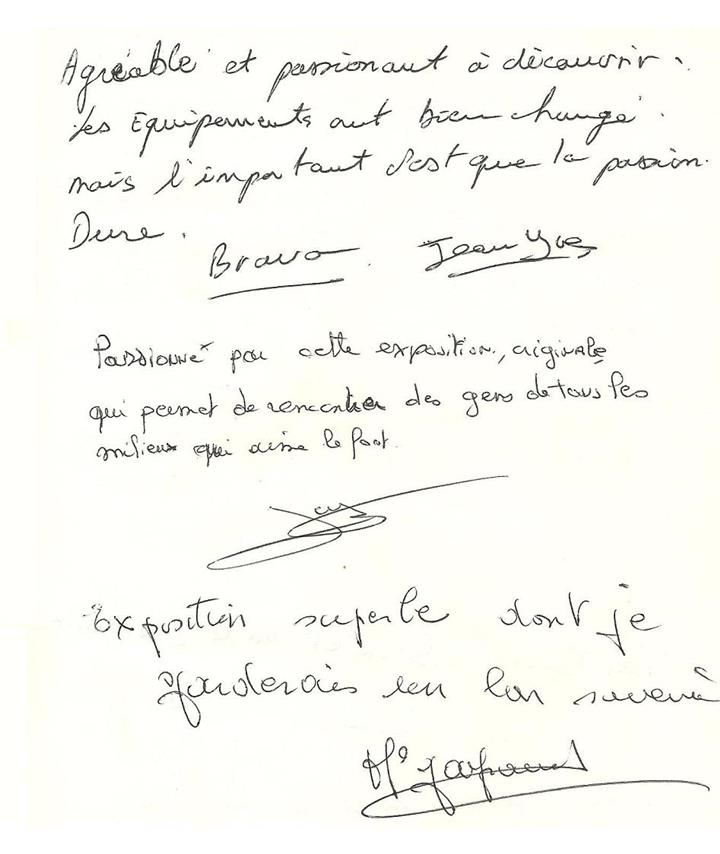 Agréable et passionant à découvrir.
Les Equipements ont bien changé.
mais l'important c'est que la passion
Dure.
Bravo. Jean Yves
Passionné par cette exposition, originale
qui permet de rencontrer des gens de tous les
milieux qui aime le foot.
Exposition superbe dont je
garderais un bon souvenir